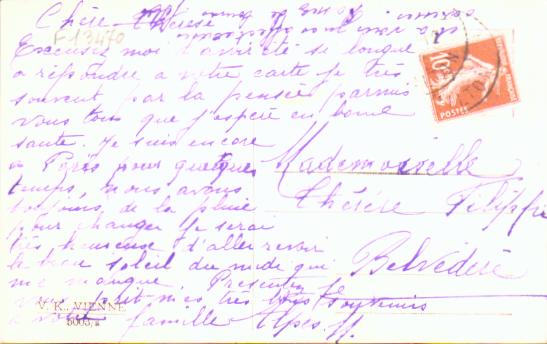 Chère Thérèse
F 13470
Excusez moi d'avoir été si longue
a répondre a votre carte je très
souvent par la pensée parmis
vous tous que j'espère en bonne
santé. Je suis encore
a Paris pour quelques
temps, nous avons
toujours de la pluie
pour changer je serai
très heureuse d'aller revoir
le beau soleil du midi qui
me manque. Presentez
mes très souvenirs
a votre famille
V. K. VIENNE
5003/2
10
POSTES
Mademoiselle
Thérèse Filippi
Belvédère
Alpes M.